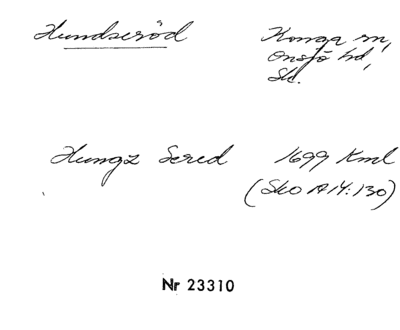 Hundseröd Konga sn,
Onsjö hd,
Sk.
Hungz Sered 1699 Kml
(Sko A 14:130)
Nr 23310